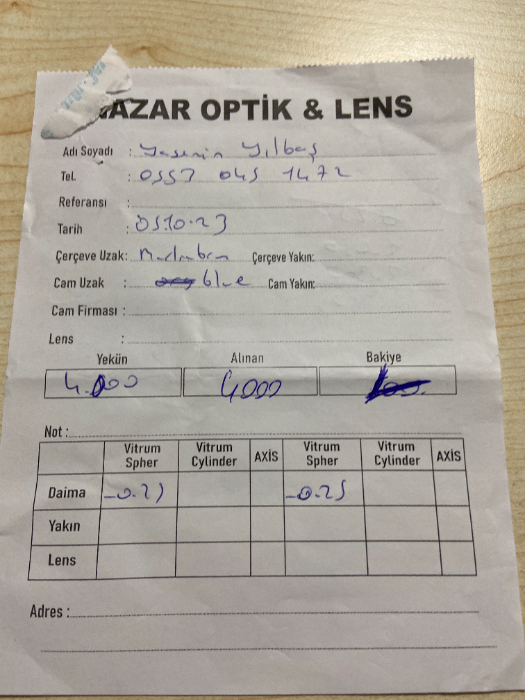 NAZAR OPTİK & LENS
Adı Soyadı : Yasemin Yılbaş
Tel. : 0553 045 1472
Referansı :
Tarih : 05.10.23
Çerçeve Uzak: Çerçeve Yakın:
Cam Uzak : blue Cam Yakın:
Cam Firması :
Lens :
Yekün Alınan Bakiye
4.000 4000
Not :
Vitrum Spher Vitrum Cylinder AXİS Vitrum Spher Vitrum Cylinder AXİS
Daima -0.25 -0.25
Yakın
Lens
Adres :